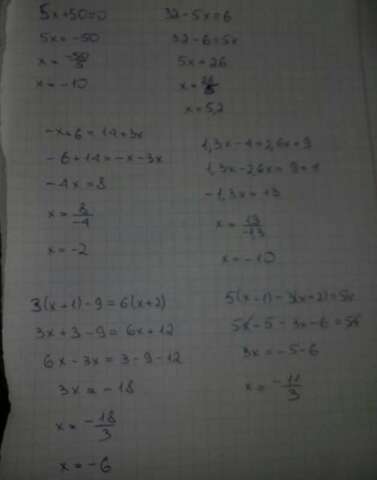 5x+50=0
5x=-50
x=-50/5
x=-10
32-5x=6
32-6=5x
5x=26
x=26/5
x=5,2
-x+6=14+3x
-6+14=-x-3x
-4x=8
x=8/-4
x=-2
1,3x-4=2,6x+9
1,3x-2,6x=9+4
-1,3x=13
x=-10
3(x+1)-9=6(x+2)
3x+3-9=6x+12
6x-3x=3-9-12
3x=-18
x=-18/3
x=-6
5(x-1)-3(x+2)=5x
5x-5-3x-6=5x
3x=-5-6
x=-11/3